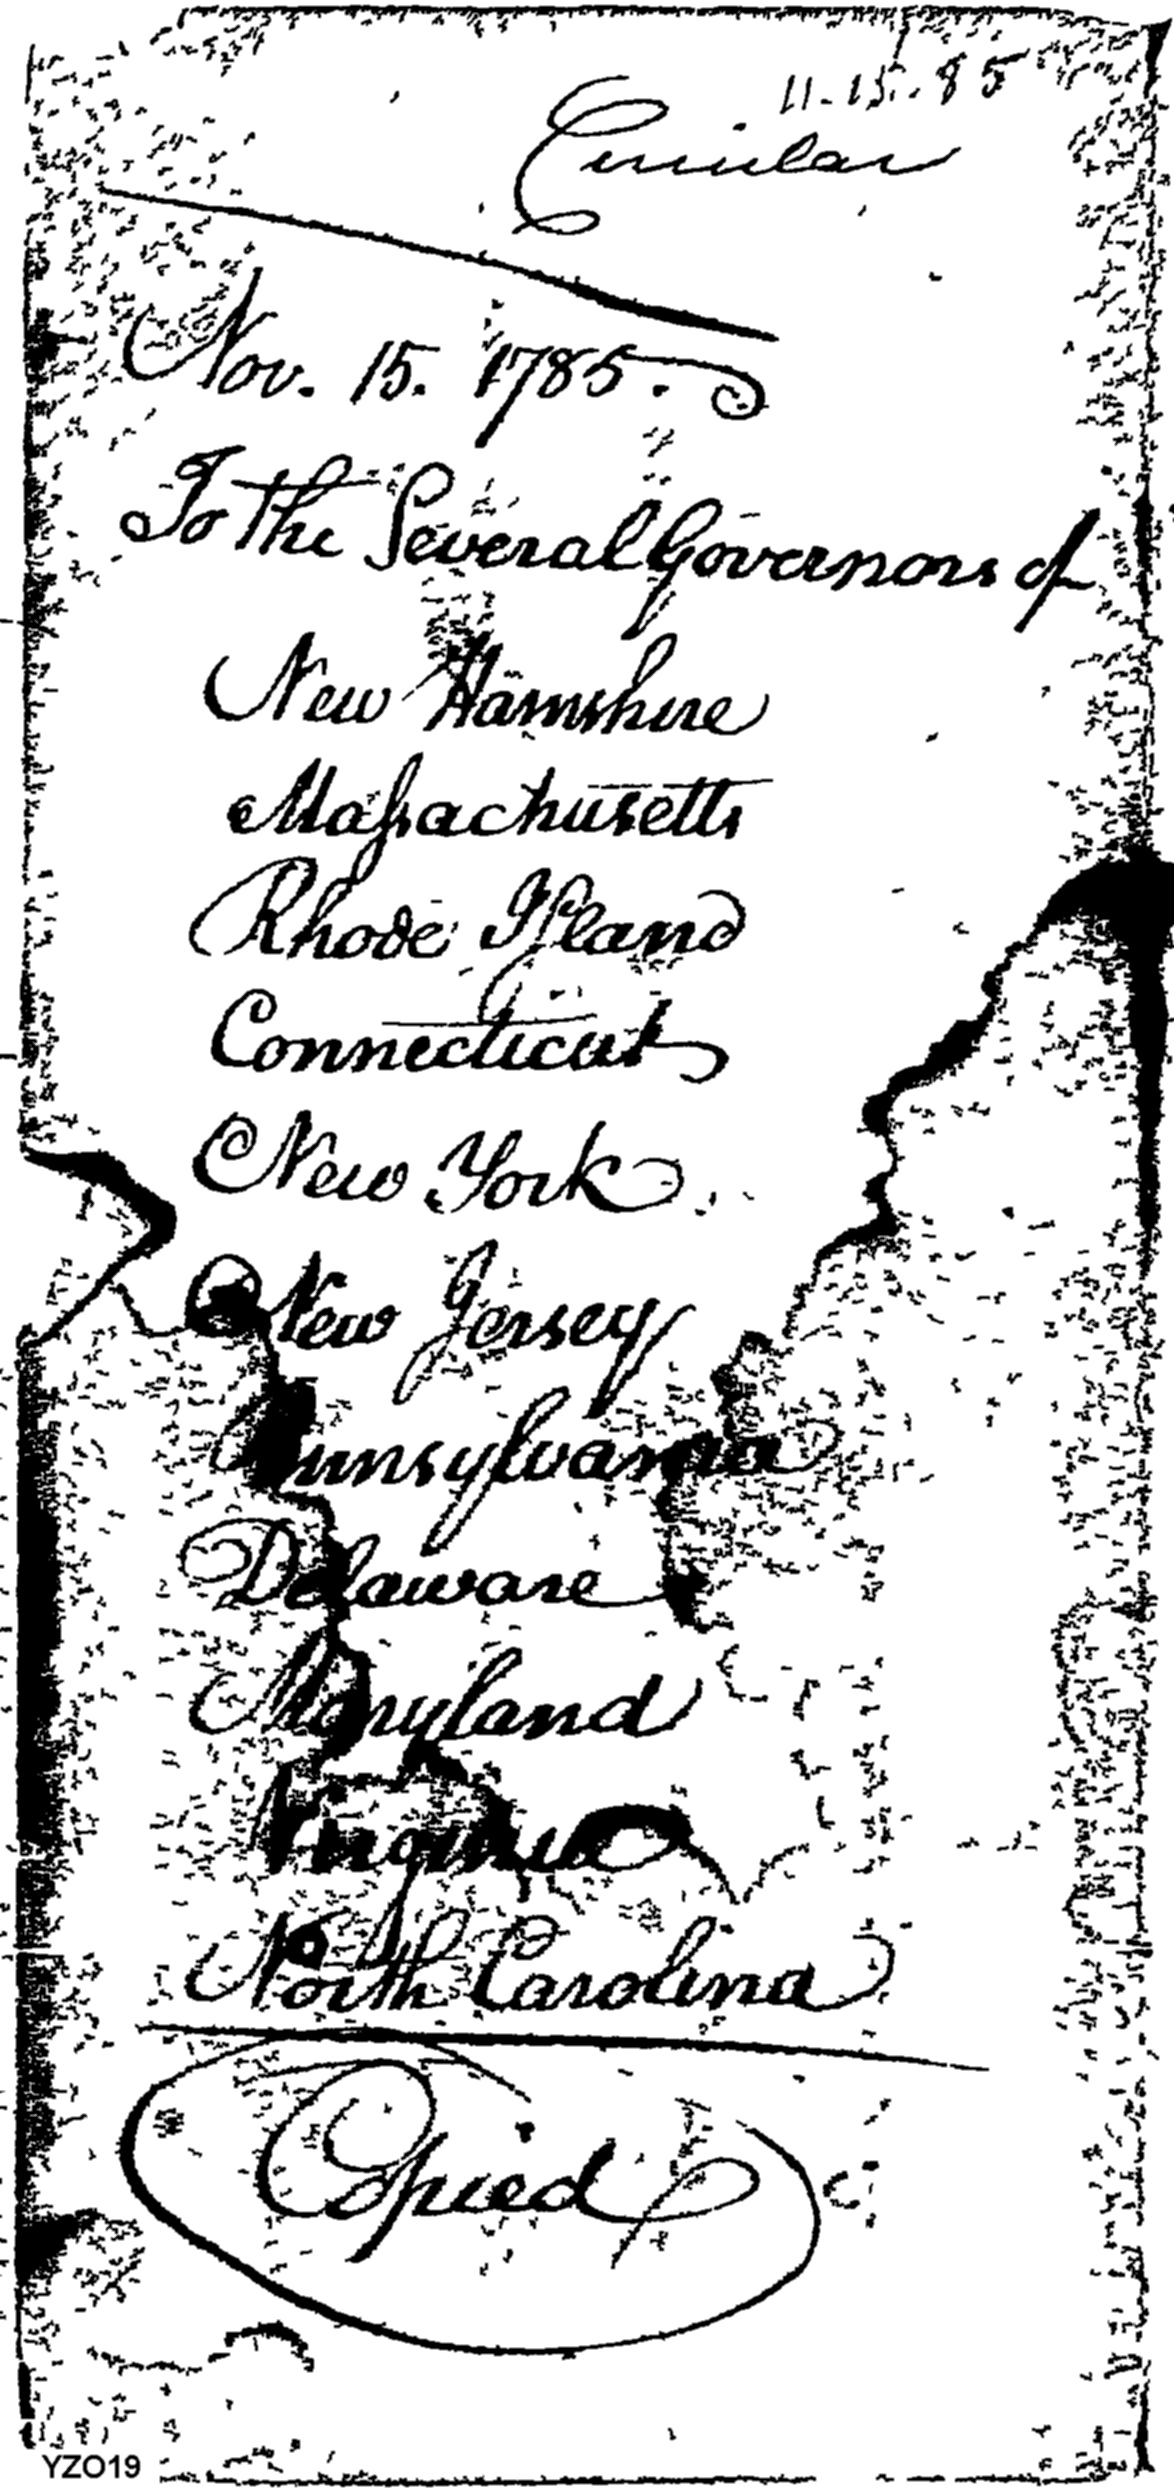 11-15-85
Circular
Nov. 15. 1785.
To the Several Governors of
New Hamshire
Massachusetts
Rhode Island
Connecticut
New York
New Jersey
Pennsylvania
Delaware
Maryland
Virginia
North Carolina
Copied
YZO19